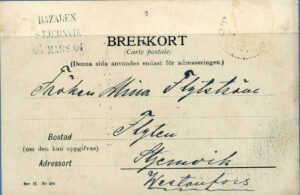 BAZAREN
STJERNVIK
25 MARS 04
BREFKORT
(Carte postale)
(Denna sida användes endast för adresseringen.)
Fröken Mina Flytström
Bostad
Flyten
(om den kan uppgifvas)
Stjernvik
Adressort
Westanfors
Ser 12. Nr